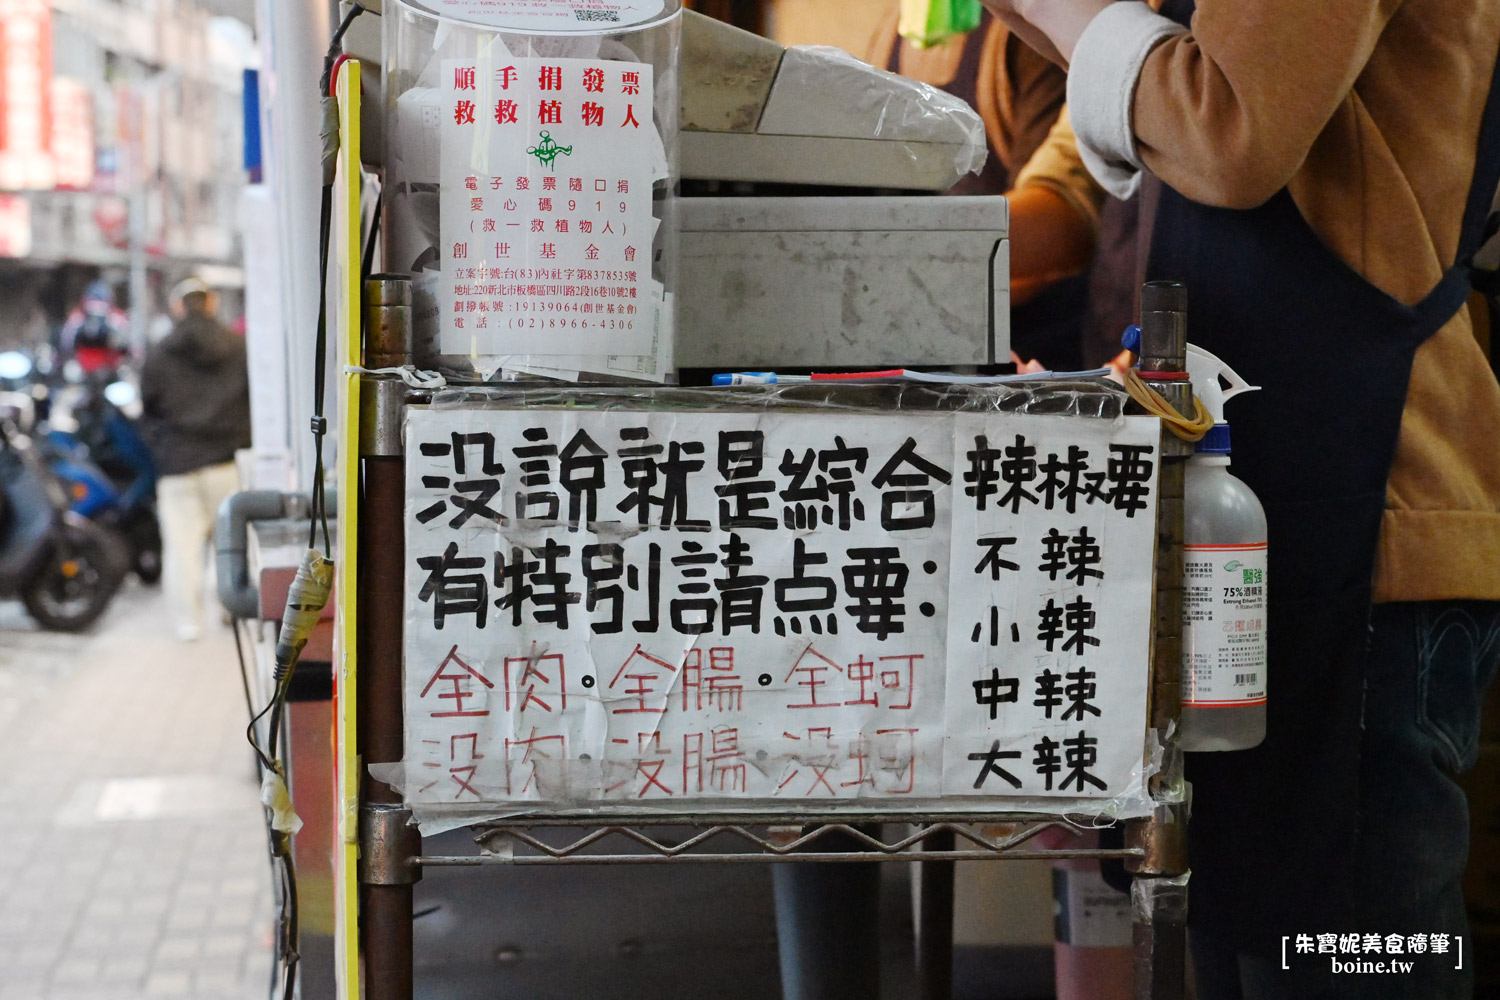 順手捐發票
救救植物人
電子發票隨口捐
愛心碼919
(救一救植物人)
創世基金會
立案字號:台(83)內社字第8378535號
地址:220新北市板橋區四川路2段16巷10號2樓
劃撥帳號:19139064(創世基金會)
電話:(02)8966-4306
沒說就是綜合
有特別請点要:
全肉·全腸·全蚵
沒肉·沒腸·沒蚵
辣椒要
不辣
小辣
中辣
大辣
醫強
75%酒精液
[朱寶妮美食隨筆]
boine.tw